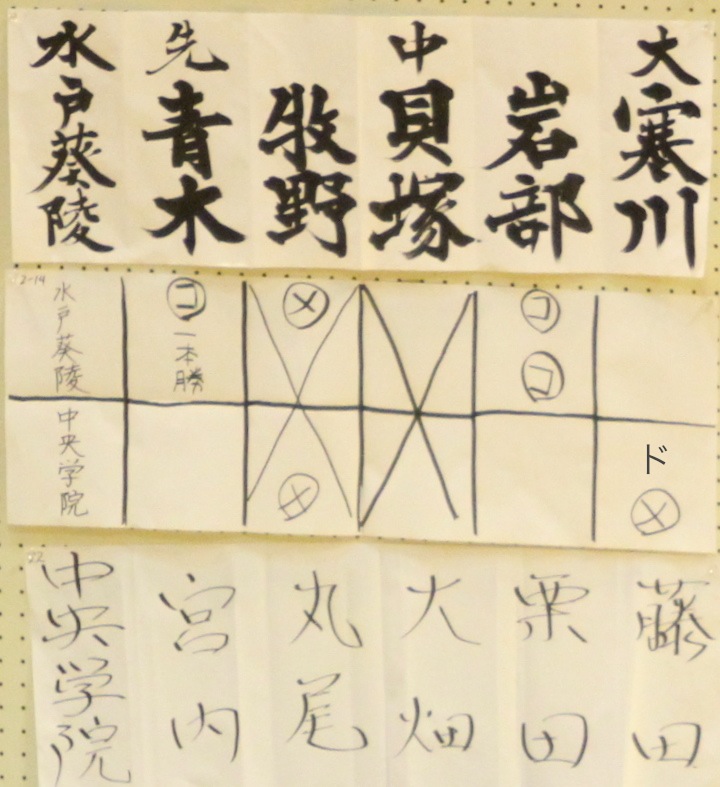 水戸葵陵
先 青木
牧野
中 貝塚
岩部
大 寒川
2-14
水戸葵陵
コ 一本勝
メ
コ
コ
中央学院
メ
ド
メ
22
中央学院
宮内
丸尾
大畑
栗田
藤田